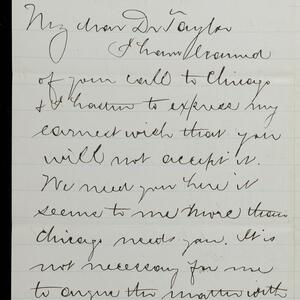 My dear Dr Taylor
I have learned
of your call to Chicago
& I hasten to express my
earnest wish that you
will not accept it.
We need you here it
seems to me more than
Chicago needs you. It is
not necessary for me
to argue the matter with